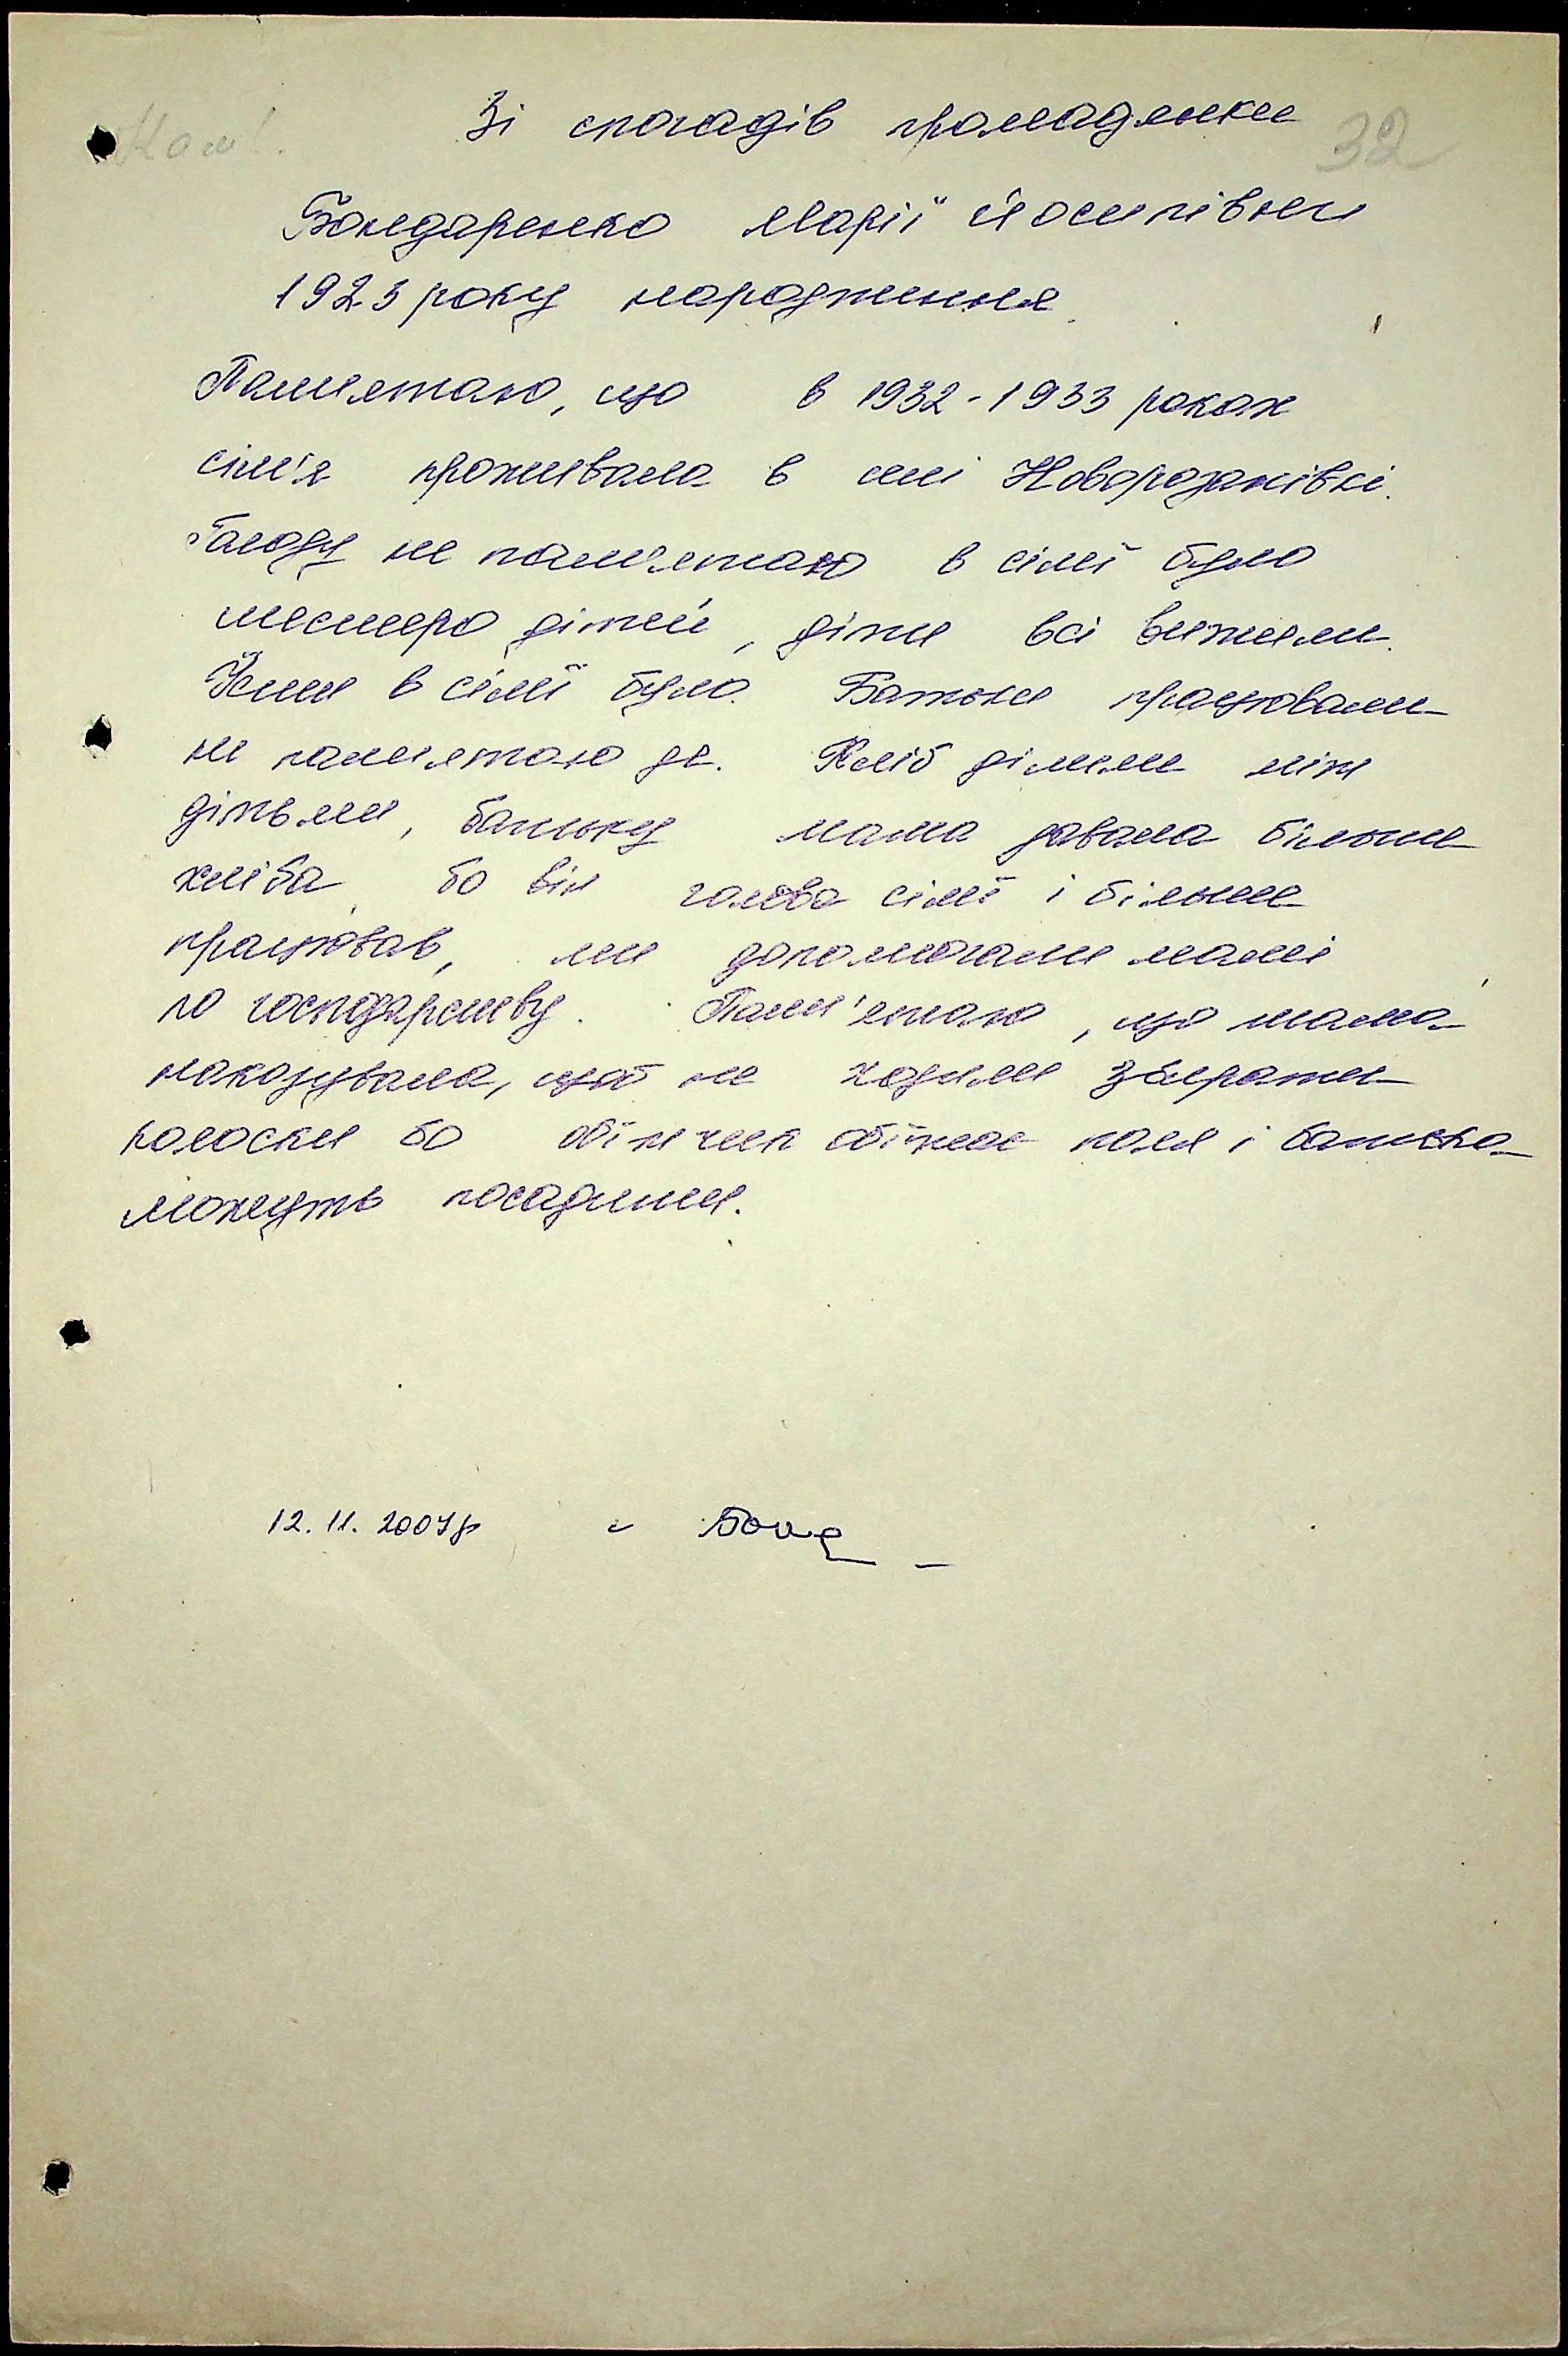 32
Зі спогадів громадянки
Бондаренко Марії Йосипівни
1923 року народження
Памятаю, що в 1932-1933 роках
сім'я проживала в смі Новорозанівкі.
Голоду не пам'ятаю в сімї було
шестеро дітей, діти всі вижили.
Їсти в сімї було. Батьки працювали
не памятаю де. Хліб ділили між
дітьми, батьку мама давала більше
хліба бо він голова сімї і більше
працював, ми допомагали мамі
по господарству. Пам'ятаю, що мама
наказувала, щоб не ходили збирати
колоски бо обїжчик обїжає поля і батька
можуть посадити.
12.11.2007р Бонд